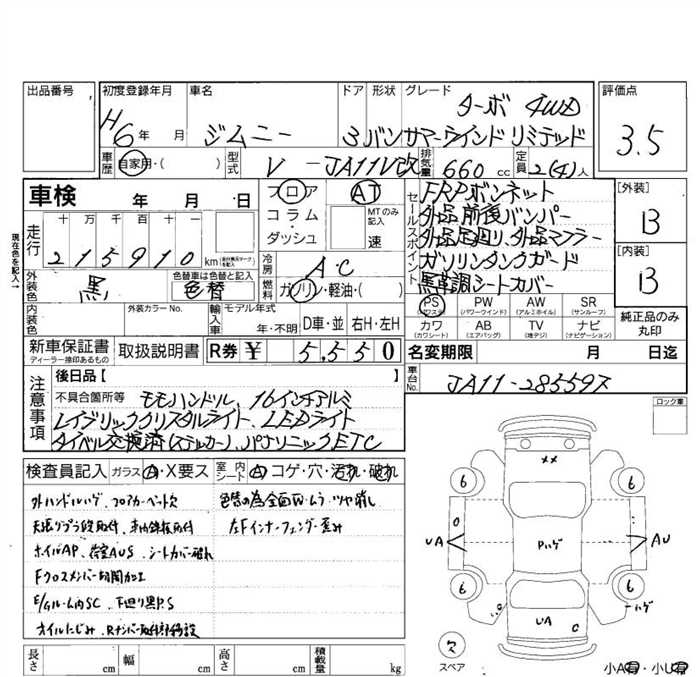 出品番号 初度登録年月 車名 ドア 形状 グレード 評価点
ターボ 4WD
H6年 月 ジムニー 3 バン サマーウインド リミテッド 3.5
車歴 自家用・( ) 型式 V-JA11V改 排気量 660cc 定員 2(4)人
車検 年 月 日
フロア コラム・ダッシュ
AT MTのみ記入 速
セールスポイント
FRPボンネット
外品前後バンパー
外品足廻り、外品マフラー
ガソリンタンクガード
黒革調シートカバー
[外装] B
[内装] B
現在色を記入→
走行 十 万 千 百 十 一
215910 km
冷房 AC
外装色 黒 色替車は色替と記入 色替
燃料 ガソリン・軽油・( )
内装色 外装カラーNo. 輸入車 モデル年式 年・不明 D車・並 右H・左H
PS (パワステ) PW (パワーウインド) AW (アルミホイル) SR (サンルーフ)
カワ (カワシート) AB (エアバッグ) TV (地デジ) ナビ (ナビゲーション)
純正品のみ丸印
新車保証書 ディーラー捺印あるもの 取扱説明書 R券 ¥ 5,550
名変期限 月 日迄
車台No. JA11-285597
注意事項
後日品【 】
不具合箇所等 モモハンドル、16インチアルミ
レイブリッククリスタルライト、LEDライト
タイベル交換済(ステッカー)、パナソニックETC
ロック車
検査員記入 ガラス A・X要ス 室内シート A コゲ・穴・汚れ・破れ
外ハンドルハゲ、フロアカーペット欠
色替の為全面W・ムラ・ツヤ消し
左Fインナーフェンダー歪み
ホイルAP、シートカバー破れ
Fクロスメンバー切開加工
下廻り黒P.S
XX
6 6
UA Pハゲ AU
6 6
ハゲ
UA C
欠
スペア
長さ cm 幅 cm 高さ cm 積載量 kg
小A有・小U有